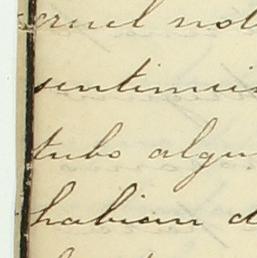 cruel not
sentimie
tubo algu
habian d